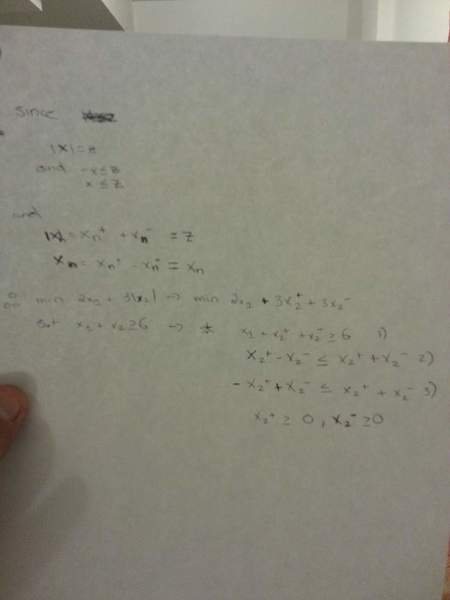 since
|x| = z
and -x ≤ z
x ≤ z
and
|x|n = xn⁺ + xn⁻ = z
xn = xn⁺ - xn⁻ = xn
∴ min 2x1 + 3|x2| → min 2x1 + 3x2⁺ + 3x2⁻
s.t x1 + x2 ≥ 6 → x1 + x2⁺ + x2⁻ ≥ 6 1)
x2⁺ - x2⁻ ≤ x2⁺ + x2⁻ 2)
-x2⁺ + x2⁻ ≤ x2⁺ + x2⁻ 3)
x2⁺ ≥ 0, x2⁻ ≥ 0